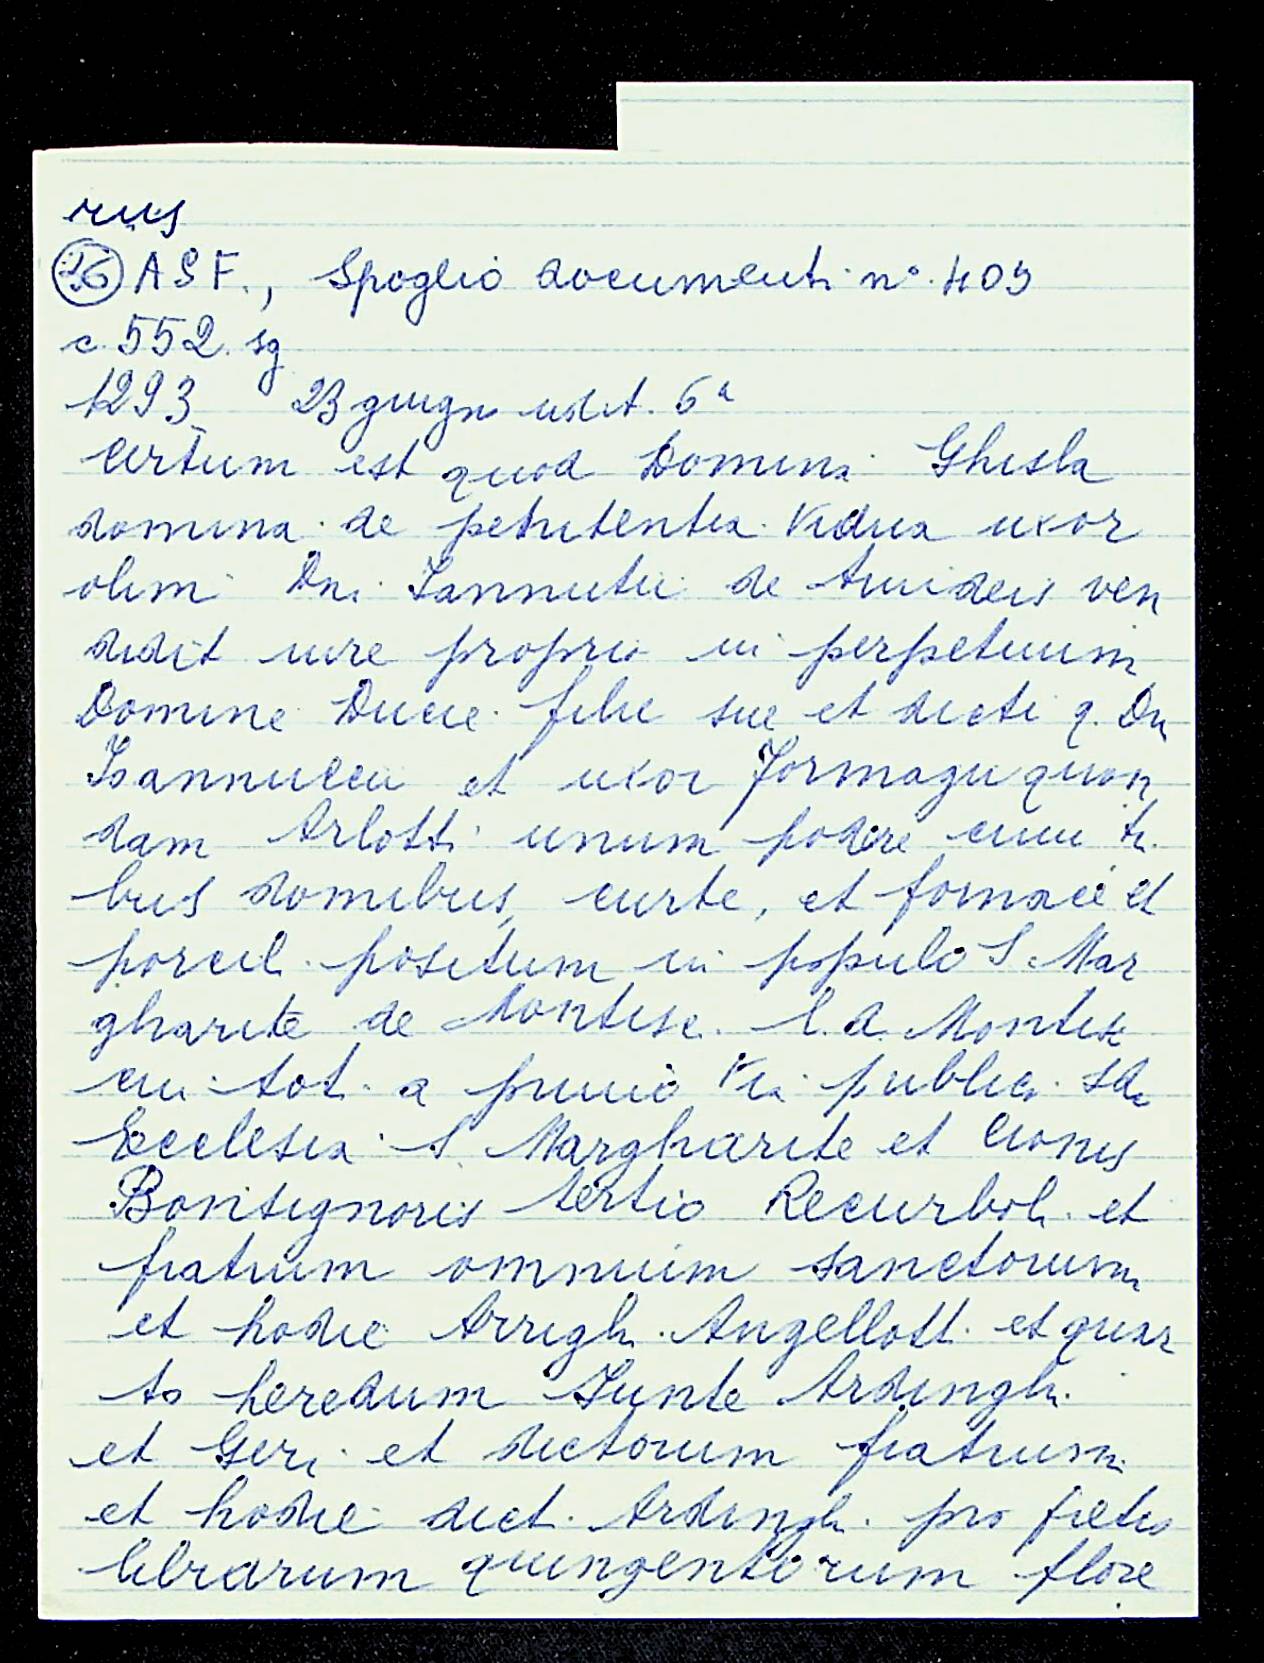 rus
26 A S F., Spoglio documenti n°. 409
c. 552. sg
1293 23 giugn indit. 6ª
certum est quod Domina Ghisla
domina de penitentia vidua uxor
olim Dni Iannutii de Amideis ven
didit iure proprio in perpetuum
Domine Ducie filie sue et dicti q. Dn
Iannuccii et uxor Formagii quon
dam Arlotti unum podere cum tri
bus domibus, curte, et fornace et
porcil. positum in populo S. Mar
gharite de Montisc. l. d. Montisc
cui tot. a primo via public.
Ecclesia S. Margharite et Cionis
Bonsignoris tertio Recurboli et
fratrum omnium sanctorum
et hodie Arrigh. Angellott. et quar
to heredum Iunte Ardingh.
et Geri et dictorum fratrum
et hodie dict. Ardingh. pro fictu
librarum quingentorum flore